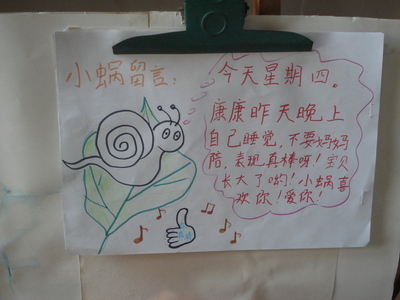 小蜗留言：
今天星期四。
康康昨天晚上
自己睡觉，不要妈妈
陪，表现真棒呀！宝贝
长大了哟！小蜗喜
欢你！爱你！